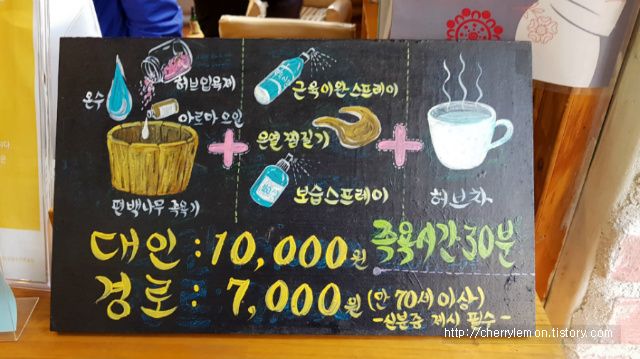 온수
허브입욕제
아로마오일
편백나무 족욕기
근육이완스프레이
온열찜질기
보습스프레이
허브차
족욕시간 30분
대인 : 10,000원
경로 : 7,000원 (만 70세 이상)
-신분증 제시 필수-
http://cherrylemon.tistory.com